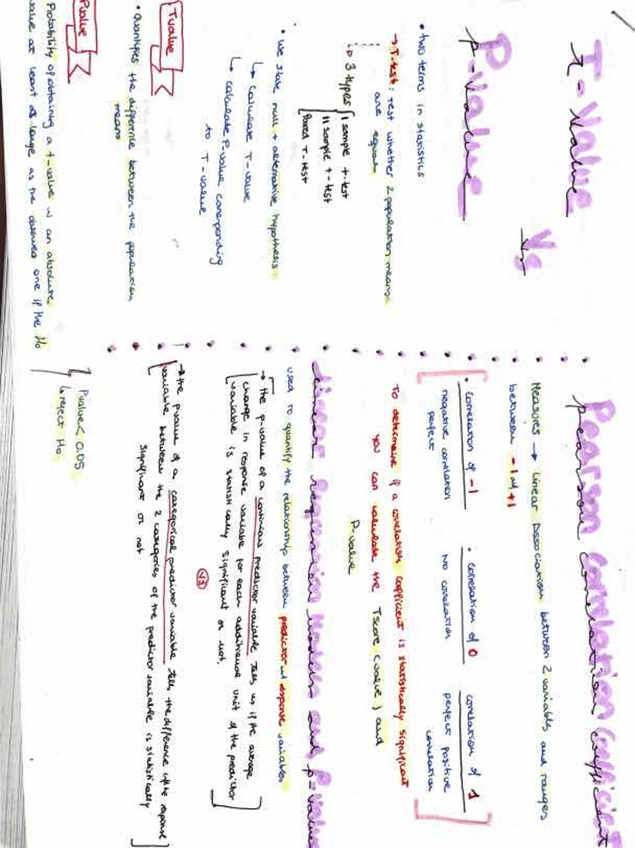 T-Value
Vs
P-Value
• two terms in statistics
→ T-test: test whether 2 population means
are equal
↳ 3 types
1 sample t-test
11 sample t-test
Paired T-test
• we state null + alternative hypothesis
↳ Calculate T-value
↳ calculate P-value
to T-value
T value
• Quantifies the difference between the population
means
P value
Probability of obtaining a t-value w an absolute
value at least as large as the observed one if the Ho
Pvalue < 0.05
↳ reject Ho
Pearson Correlation Coefficient
pearson correlation coefficient
Measures → linear association between 2 variables and ranges
between -1 and +1
• correlation of -1
negative correlation
perfect
• correlation of 0
No correlation
correlation of 1
perfect positive
correlation
To determine if a correlation coefficient is statistically significant
you can calculate the Tscore (value) and
P-value
Linear regression Models and P-value
used to quantify the relationship between predictor and response variables
→ the p-value of a continuous predictor variable tells us if the average
change in response variable for each additional unit of the predictor
variable is statistically significant or not.
VS
→ the pvalue of a categorical predictor variable tells the difference in the response
variable between the 2 categories of the predictor variable is statistically
significant or not